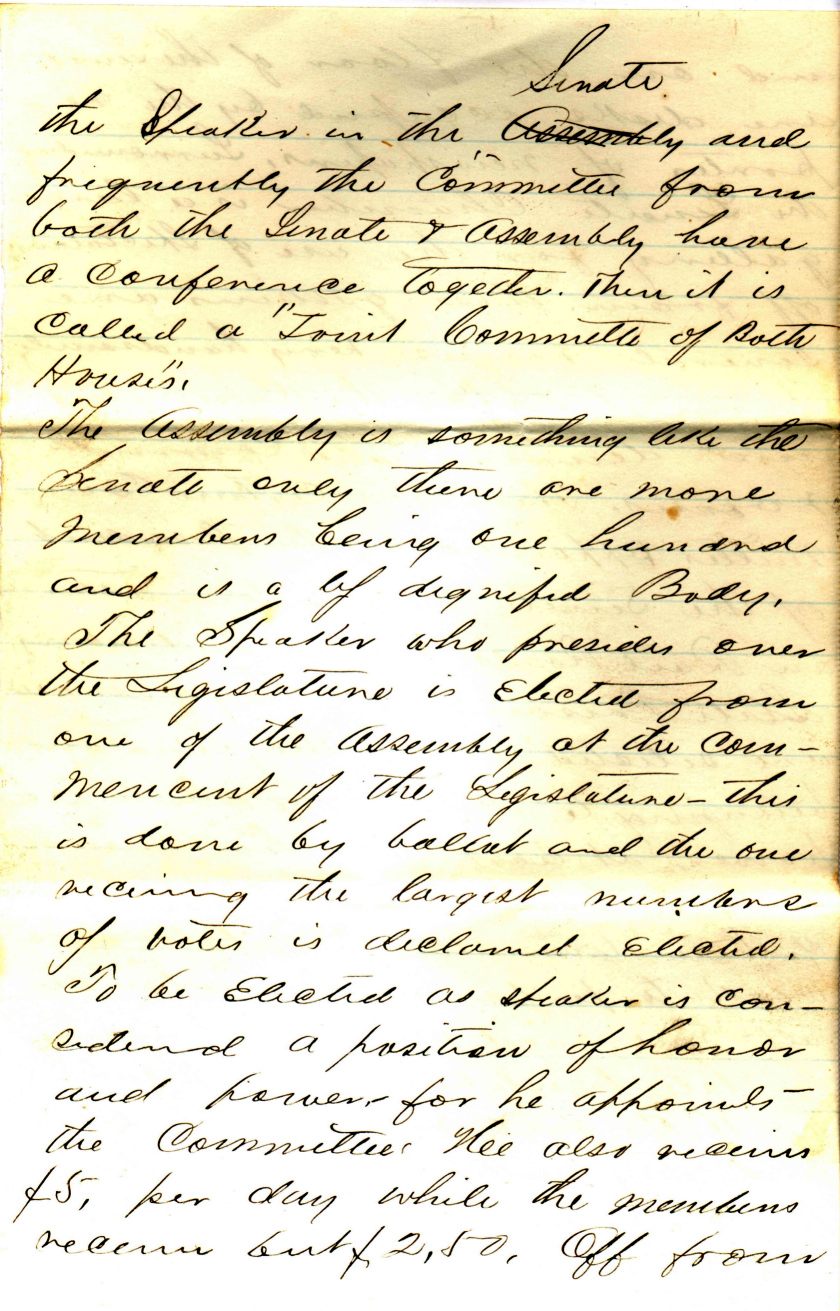 Senate
the Speaker in the Assembly and
frequently the Committee from
both the Senate & Assembly have
a Conference together. Then it is
called a "Joint Committe of Both
Houses".
The Assembly is something like the
Senate only there are more
members being one hundred
and is a dignified Body.
The Speaker who presides over
the Legislature is Elected from
one of the Assembly at the Com-
mencent of the Legislature - this
is done by ballot and the one
receiving the largest numbers
of votes is declared Elected.
To be Elected as speaker is con-
sidered a position of honor
and power - for he appoints
the Committee. Hee also receives
$5, per day while the members
receive but $2,50. Off from